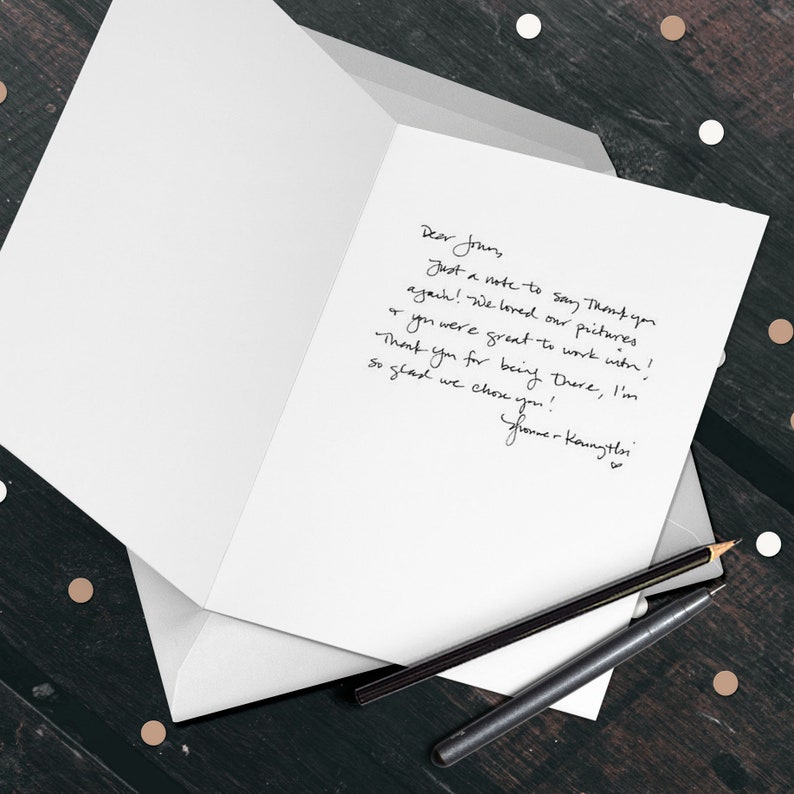 Dear
Just a note to say Thank you
again! We loved our pictures
+ you were great to work with!
Thank you for being There, I'm
so glad we chose you!